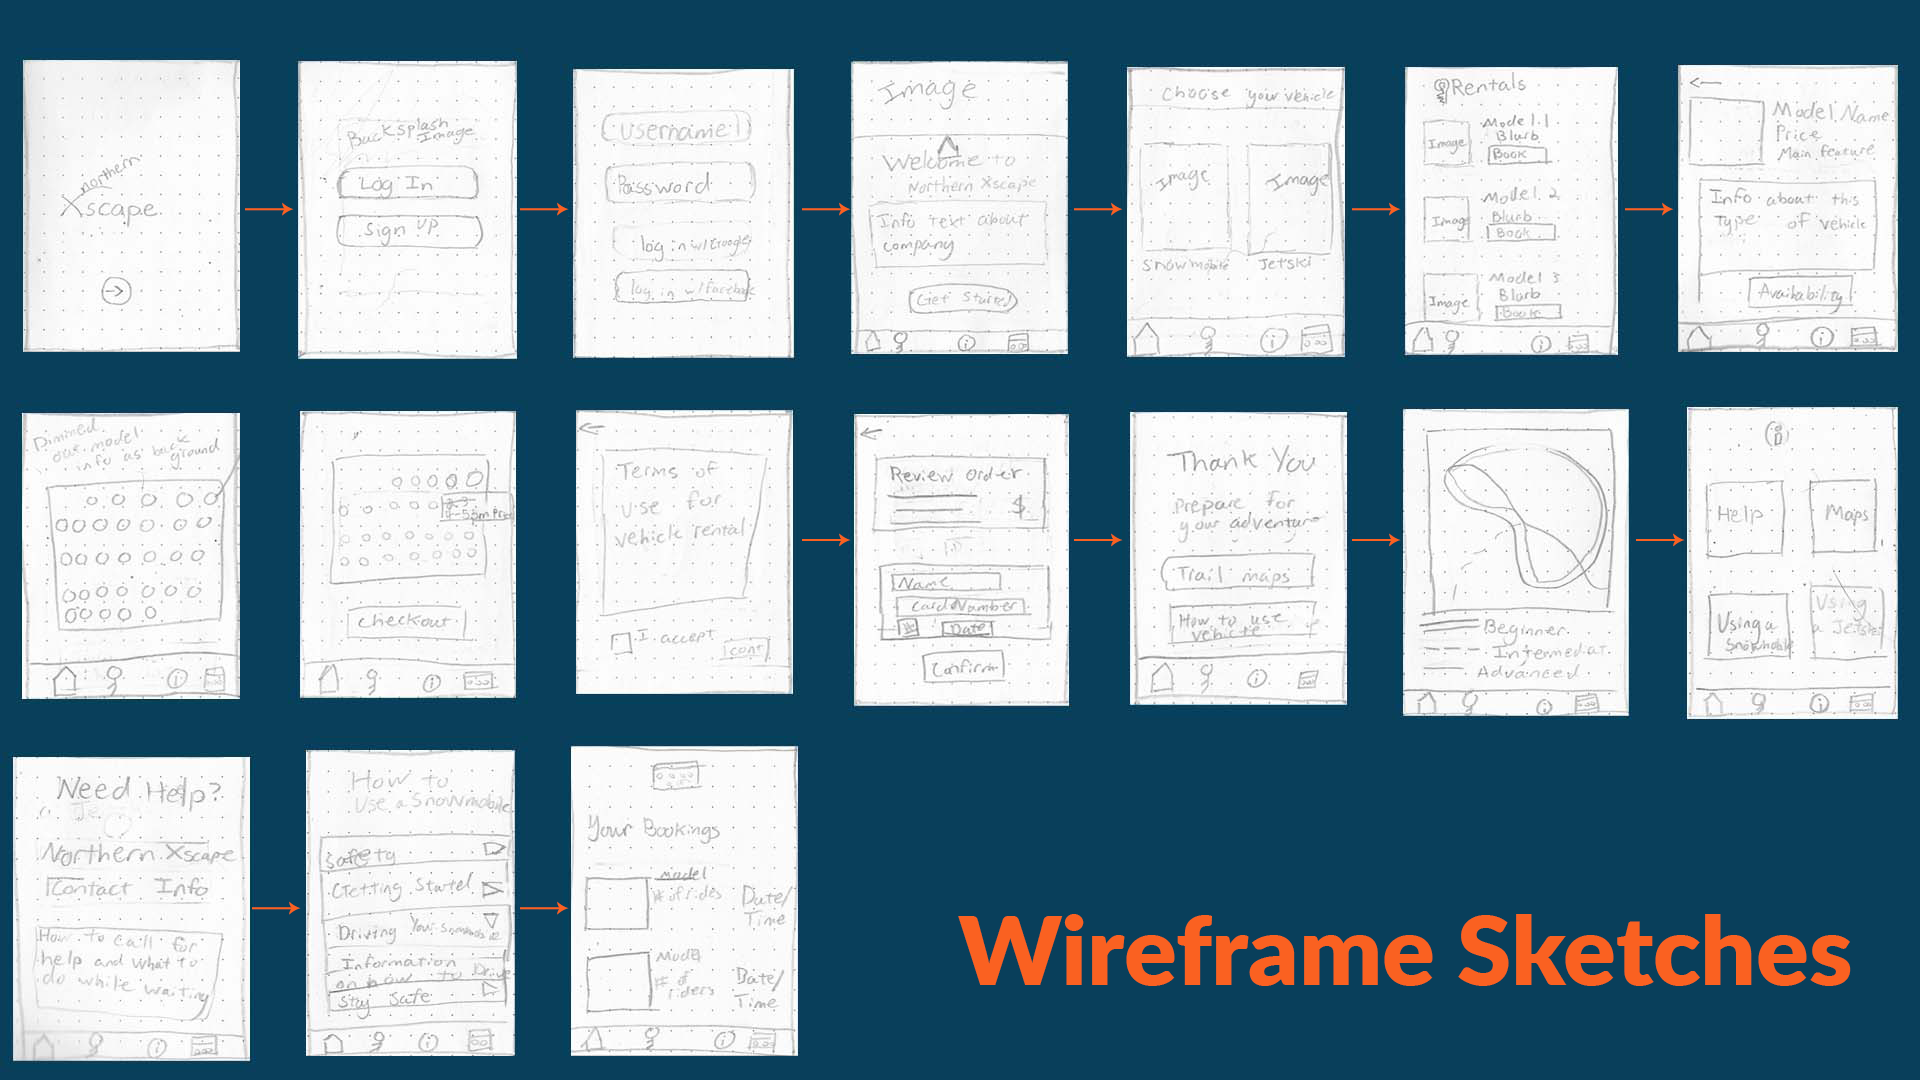 northern
Xscape
Backsplash
Image
Log In
Sign UP
username
Password
log in w/Google
log in w/facebook
Image
Welcome to
Northern Xscape
Info text about
company
Get Started
Choose your vehicle
Image
Image
Snowmobile
Jetski
Rentals
Image
Model 1
Blurb
Book
Image
Model 2
Blurb
Book
Image
Model 3
Blurb
Book
Model Name
Price
Main feature
Info about this
Type of vehicle
Availability
Dimmed
out model
info as back
ground
checkout
Terms of
use for
vehicle rental
I accept
cont
Review Order
$
Name
Card Number
Date
Confirm
Thank You
Prepare for
your adventure
Trail maps
How to use
vehicle
Beginner
Intermediat.
Advanced
Help
Maps
Using a
Snowmobile
Using
a Jetski
Need Help?
Northern Xscape
Contact Info
How to call for
help and what to
do while waiting
How to
Use a Snowmobile
Safety
Getting Started
Driving Your Snowmobile
Information
on how to Drive
Stay Safe
Your Bookings
model
# of rides
Date/
Time
Model
# of
riders
Date/
Time
Wireframe Sketches